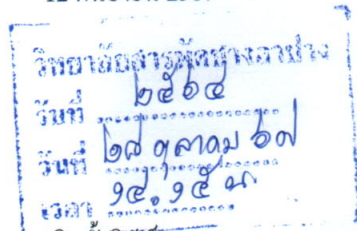 วิทยาลัยสารพัดช่างลำปาง
รับที่ ๒๕๖๔
วันที่ ๒๘ ตุลาคม ๖๗
เวลา ๑๔.๑๕ น